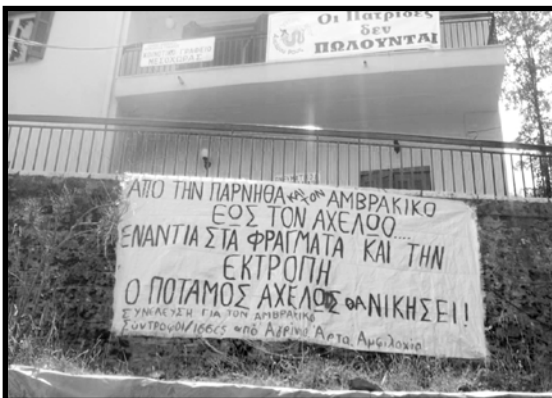 Οι Πατρίδες
δεν
ΠΩΛΟΥΝΤΑΙ
ΜΕΣΟΧΩΡΑΣ
ΑΠΟ ΤΗΝ ΠΑΡΝΗΘΑ ΚΑΙ ΤΟΝ ΑΜΒΡΑΚΙΚΟ
ΕΩΣ ΤΟΝ ΑΧΕΛΩΟ....
ΕΝΑΝΤΙΑ ΣΤΑ ΦΡΑΓΜΑΤΑ ΚΑΙ ΤΗΝ
ΕΚΤΡΟΠΗ
Ο ΠΟΤΑΜΟΣ ΑΧΕΛΩΟΣ ΘΑ ΝΙΚΗΣΕΙ!
ΣΥΝΕΛΕΥΣΗ ΓΙΑ ΤΟΝ ΑΜΒΡΑΚΙΚΟ
Σύντροφοι/ισσες από Αγρίνιο Άρτα Αμφιλοχία